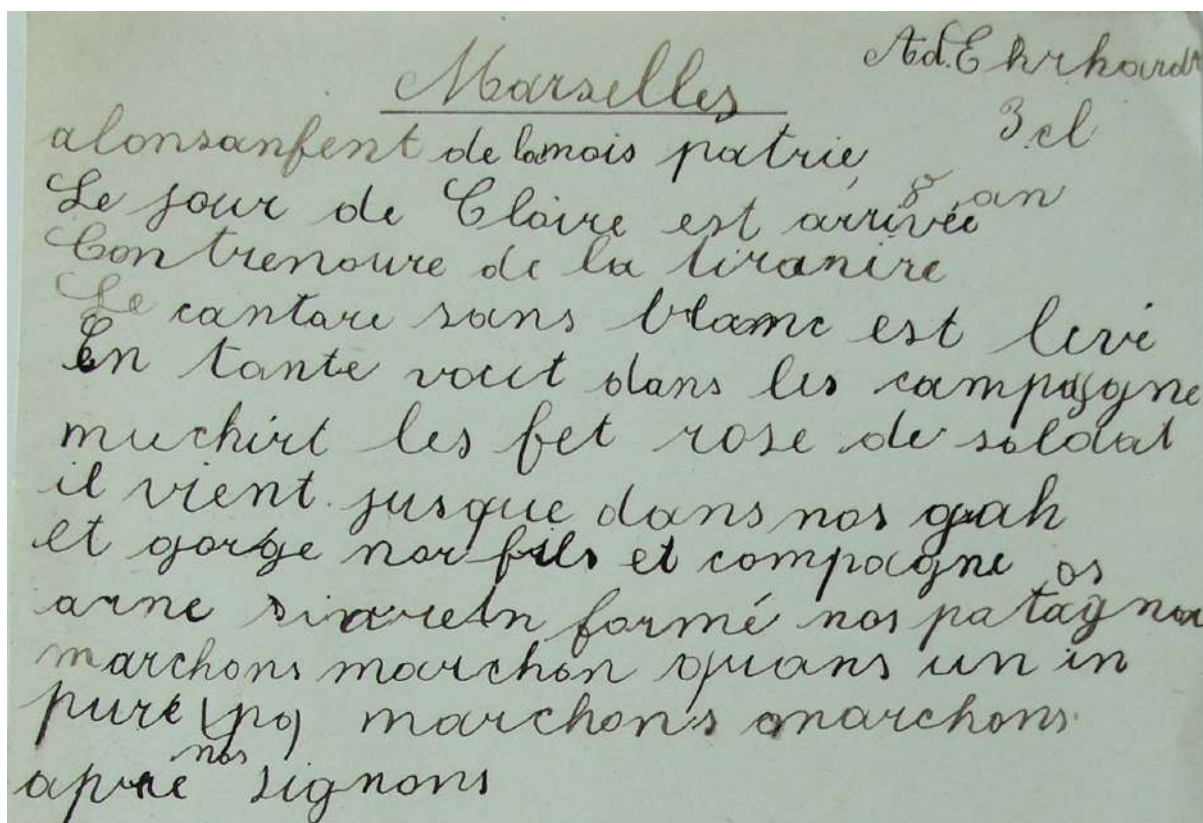 Ad. Ehrhardt
Marselles
3 cl
alonsanfent de lamois patrie,
8 an
Le jour de Cloire est arrivée
Contrenoure de la tiranire
Le cantare sans blame est livé
En tante vout dans les campagne
muchirt les fet rose de soldat
il vient jusque dans nos grah
et gorge nos fils et compagne
arne formé nos patagnos
marchons marchon quans un in
puré (po) marchons marchons
apree nos signons